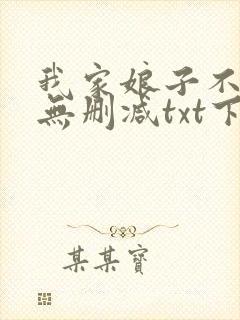 我家娘子不
無删减txt下
某某寶